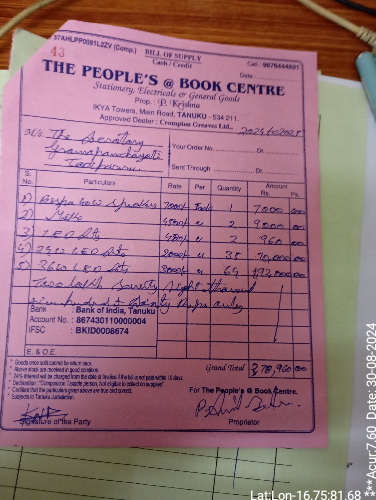 37AHLPP0091L2ZV (Comp.) BILL OF SUPPLY Cell : 9676444891
43 Cash / Credit Date
THE PEOPLE'S @ BOOK CENTRE
Stationery, Electricals & General Goods
Prop. : P. Krishna
IKYA Towers, Main Road, TANUKU - 534 211.
Approved Dealer : Crompton Greaves Ltd.,
M/s. The Secretary
Your Order No. Dt.
Sent Through Dt.
S. No. Particulars Rate Per Quantity Amount Rs. Ps.
1) 7000/- 1 7000 00
2) 4500/- 2 9000 00
3) LED 480/- 2 960 00
4) LED 2000/- 35 70,000 00
5) LED 3000/- 64 192,000 00
Bank : Bank of India, Tanuku
Account No. : 867430110000004
IFSC : BKID0008674
E. & O.E.
* Goods once sold cannot be return back.
* Above stock are received in good condition.
* 24% Interest will be charged from the date of Invoice if the bill is not paid within 10 days.
* Certified that the particulars given above are true and correct.
* Subjects to Tanuku Jurisdiction
Grand Total 2,78,960 00
For The People's @ Book Centre.
Signature of the Party
Proprietor
Lat:Lon-16.75:81.68
***Acur:7.60 Date: 30-08-2024